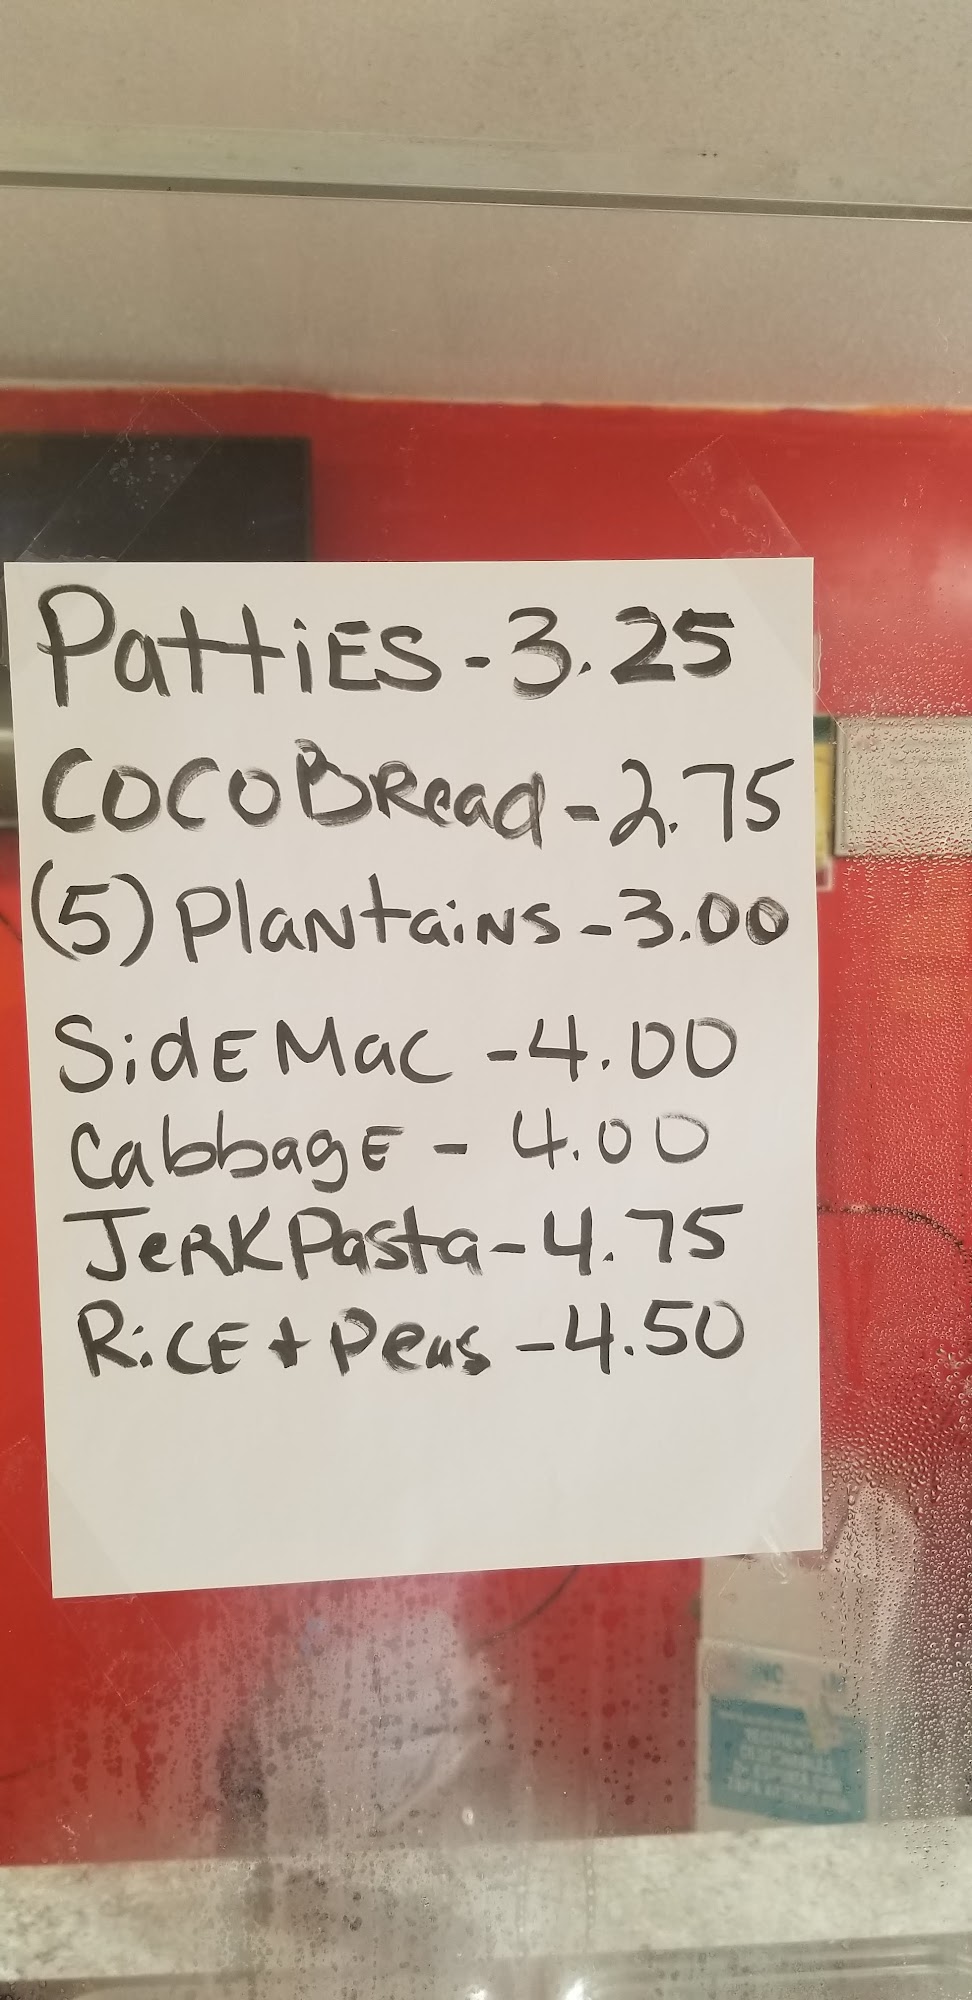 PattiES - 3.25
COCO BRead - 2.75
(5) PlaNtaiNS - 3.00
SidE Mac - 4.00
CabbagE - 4.00
JeRK Pasta - 4.75
RiCE + Peas - 4.50